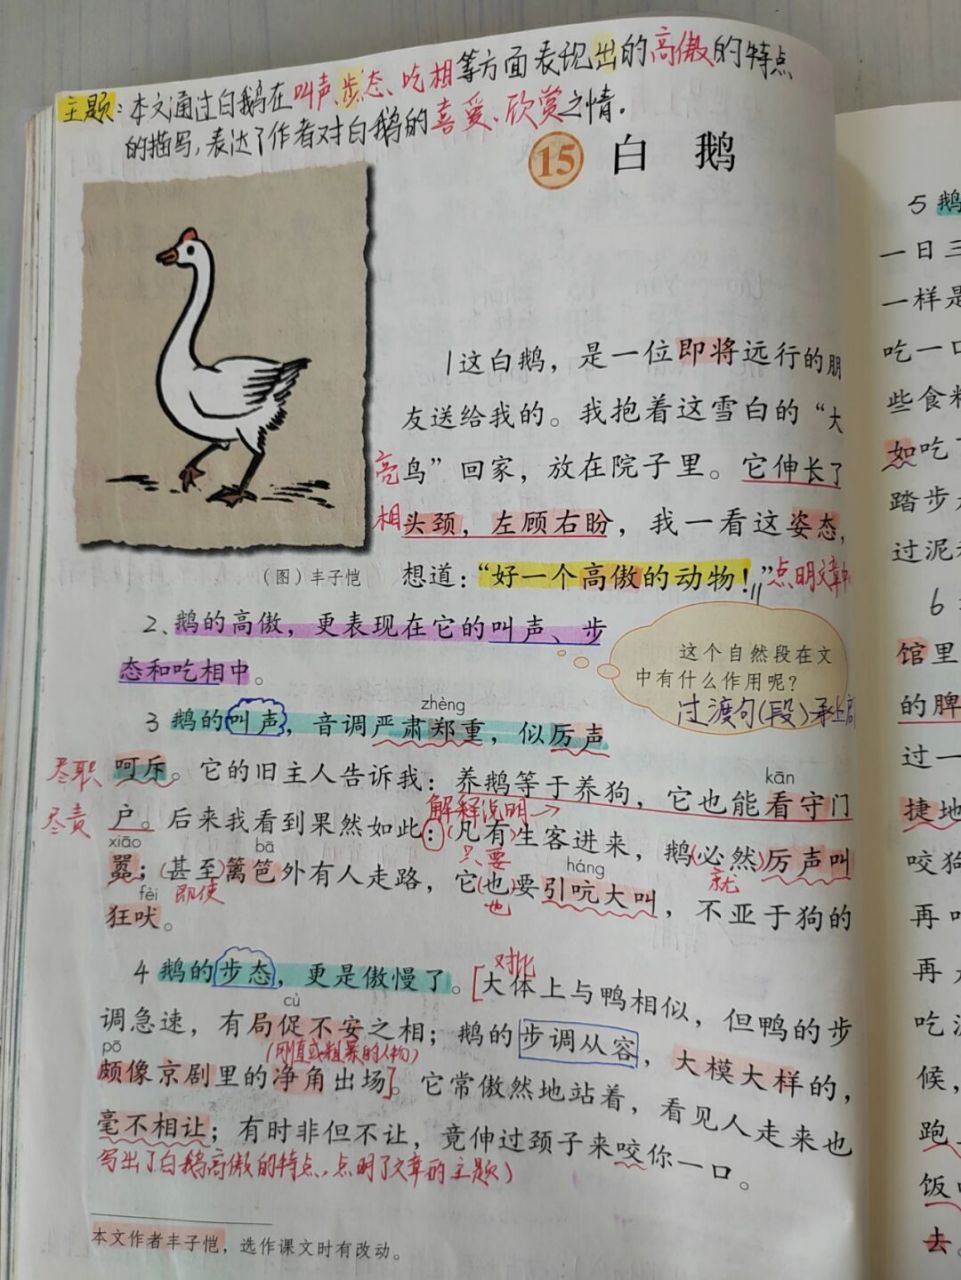 主题：本文通过白鹅在叫声、步态、吃相等方面表现出的高傲的特点
的描写，表达了作者对白鹅的喜爱、欣赏之情。
15 白 鹅
1这白鹅，是一位即将远行的朋
友送给我的。我抱着这雪白的“大
亮鸟”回家，放在院子里。它伸长了
相头颈，左顾右盼，我一看这姿态，
（图）丰子恺
想道：“好一个高傲的动物！”点明文章中
2、鹅的高傲，更表现在它的叫声、步
态和吃相中。
这个自然段在文
中有什么作用呢？
过渡句(段)承上启
zhèng
3 鹅的叫声，音调严肃郑重，似厉声
尽职 呵斥。它的旧主人告诉我：养鹅等于养狗，它也能看守门
kān
解释说明
尽责 户。后来我看到果然如此：(凡有)生客进来，鹅(必然)厉声叫
只要 就
xiāo bā háng
嚣；(甚至)篱笆外有人走路，它(也)要引吭大叫，不亚于狗的
即使 也
fèi
狂吠。
对比
4 鹅的步态，更是傲慢了。[大体上与鸭相似，但鸭的步
cù
调急速，有局促不安之相；鹅的步调从容，大模大样的，
(刚直或粗暴的人物)
pō
颇像京剧里的净角出场]。它常傲然地站着，看见人走来也
毫不相让；有时非但不让，竟伸过颈子来咬你一口。
写出了白鹅高傲的特点，点明了文章的主题)
本文作者丰子恺，选作课文时有改动。
5 鹅
一日三
一样是
吃一口
些食料
如吃了
踏步
过泥
6
馆里
的脾
过一
捷地
咬狗
再
再
吃
候，
跑
饭
去。